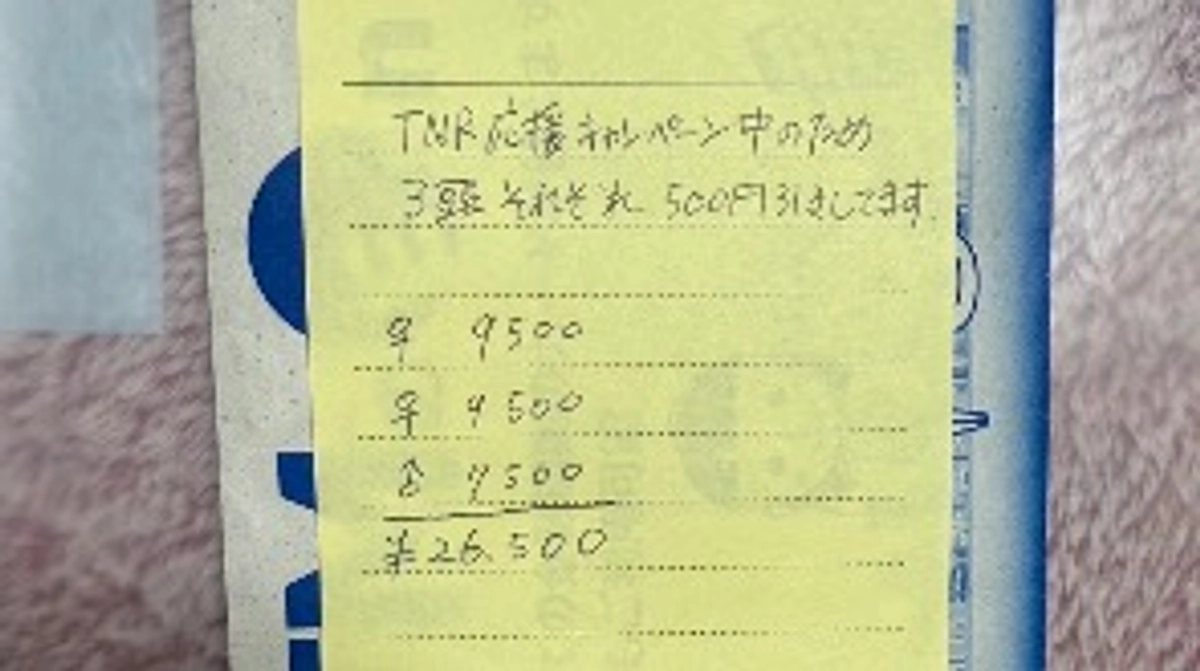 TNR応援キャンペーン中のため
3頭それぞれ500円引きしてます.
♀ 9500
♀ 9500
♂ 7500
¥26,500